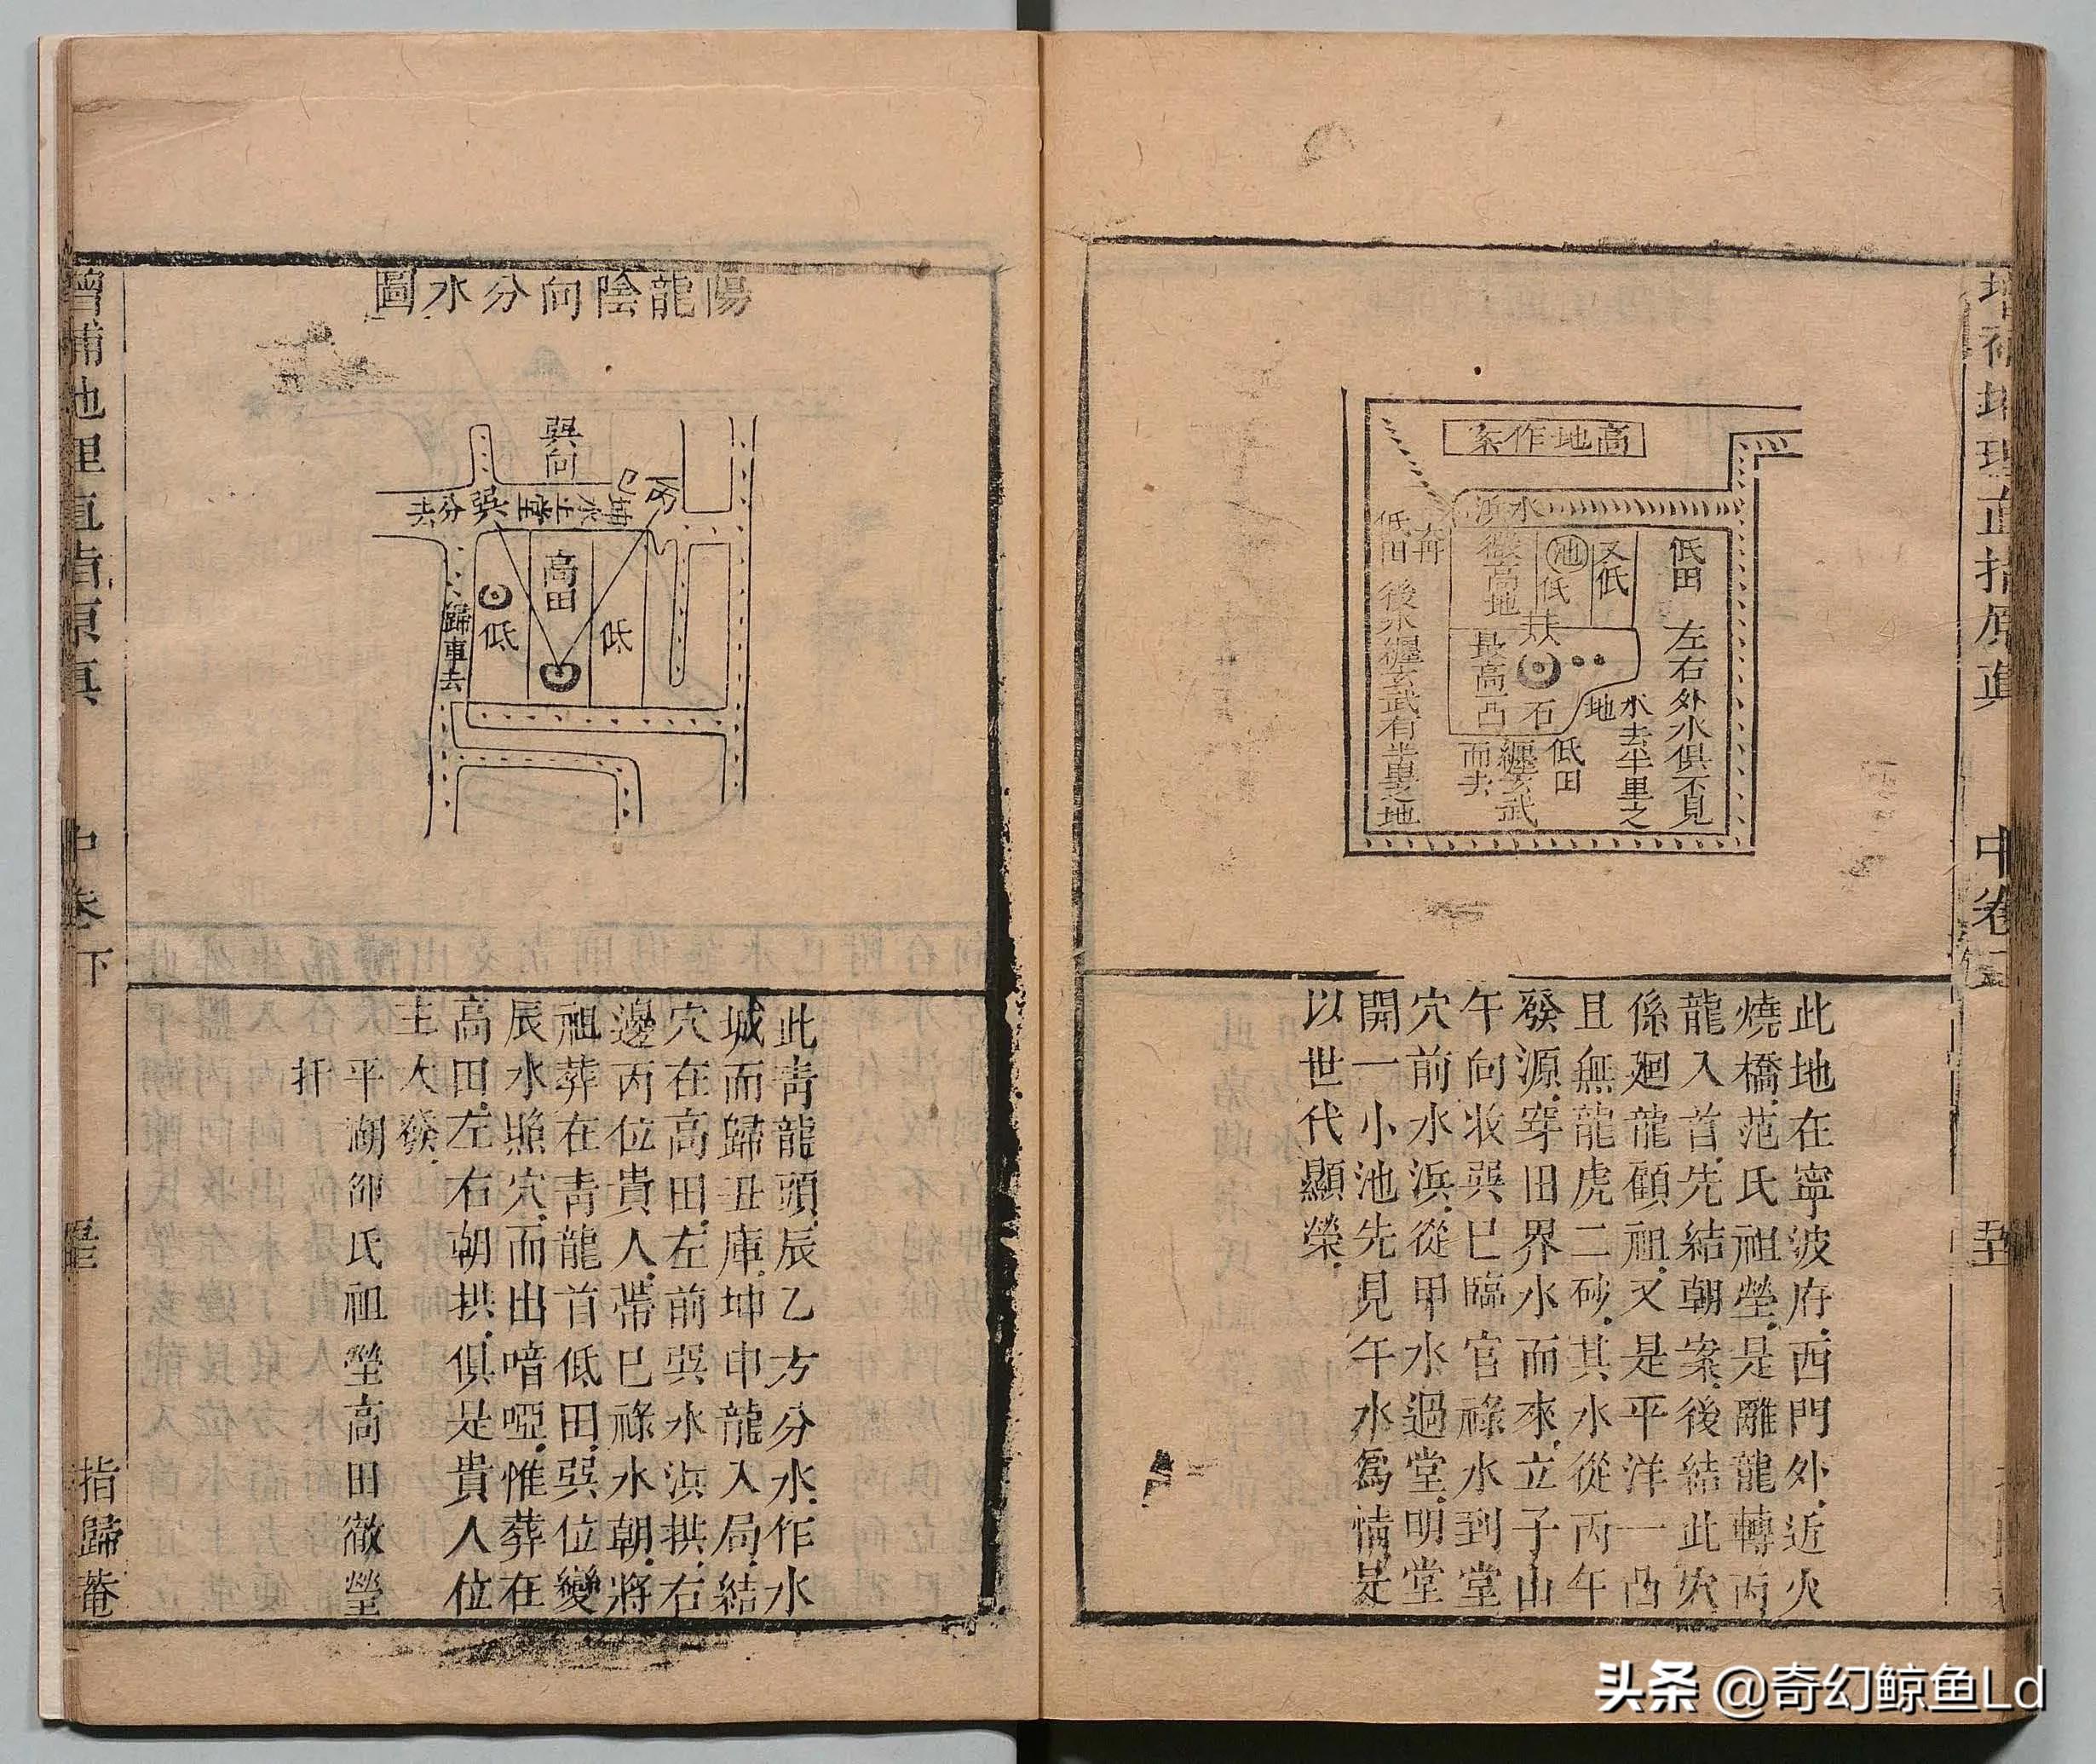 增補地理直指原真
中卷下
高地作案
水浜
低田
後水纏玄武有半里之地
微高地
池
低
又低
低田
左右外水俱不見
最高凸
石
地
水去半里之
纏玄武
而去
低田
此地在寧波府西門外近火
燒橋范氏祖塋是離龍轉丙
龍入首先結朝案後結此穴
係廻龍顧祖又是平洋一凸
且無龍虎二砂其水從丙午
發源穿田界水而來立子山
午向收巽巳臨官祿水到堂
穴前水浜從甲水過堂明堂
開一小池先見午水爲情是
以世代顯榮
陽龍陰向分水圖
巽向
巳
丙
高田
低
低
歸庫去
此青龍頭辰乙方分水作水
城而歸丑庫坤申龍入局結
穴在高田左前巽水浜拱右
邊丙位貴人帶巳祿水朝將
祖葬在青龍首低田巽位變
辰水照穴而出喑啞惟葬在
高田左右朝拱俱是貴人位
主大發
平湖邵氏祖塋高田徹瑩
扦
增補地理直指原真
中卷下
指歸菴
头条 @奇幻鲸鱼Ld